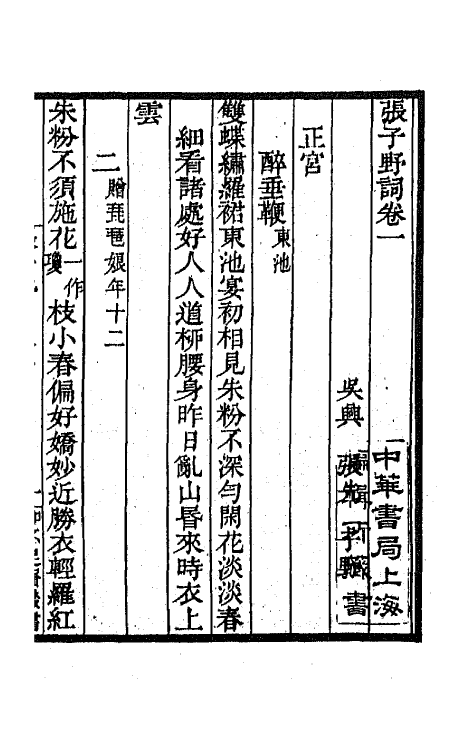 張子野詞卷一
吳興 張先 子野
中華書局上海
編輯所藏書
正宮
醉垂鞭 東池
雙蝶繡羅裙東池宴初相見朱粉不深勻閑花淡淡春
細看諸處好人人道柳腰身昨日亂山昏來時衣上
雲
二 贈琵琶娘年十二
朱粉不須施花一作瓊枝小春偏好嬌妙近勝衣輕羅紅